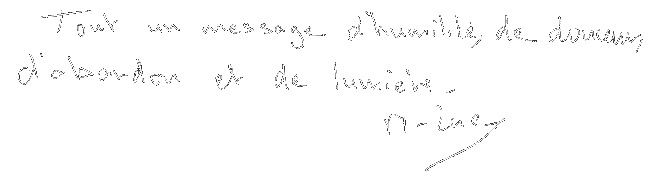 Tout un message d'humilité, de douceur,
d'abandon et de lumière.
M-Line